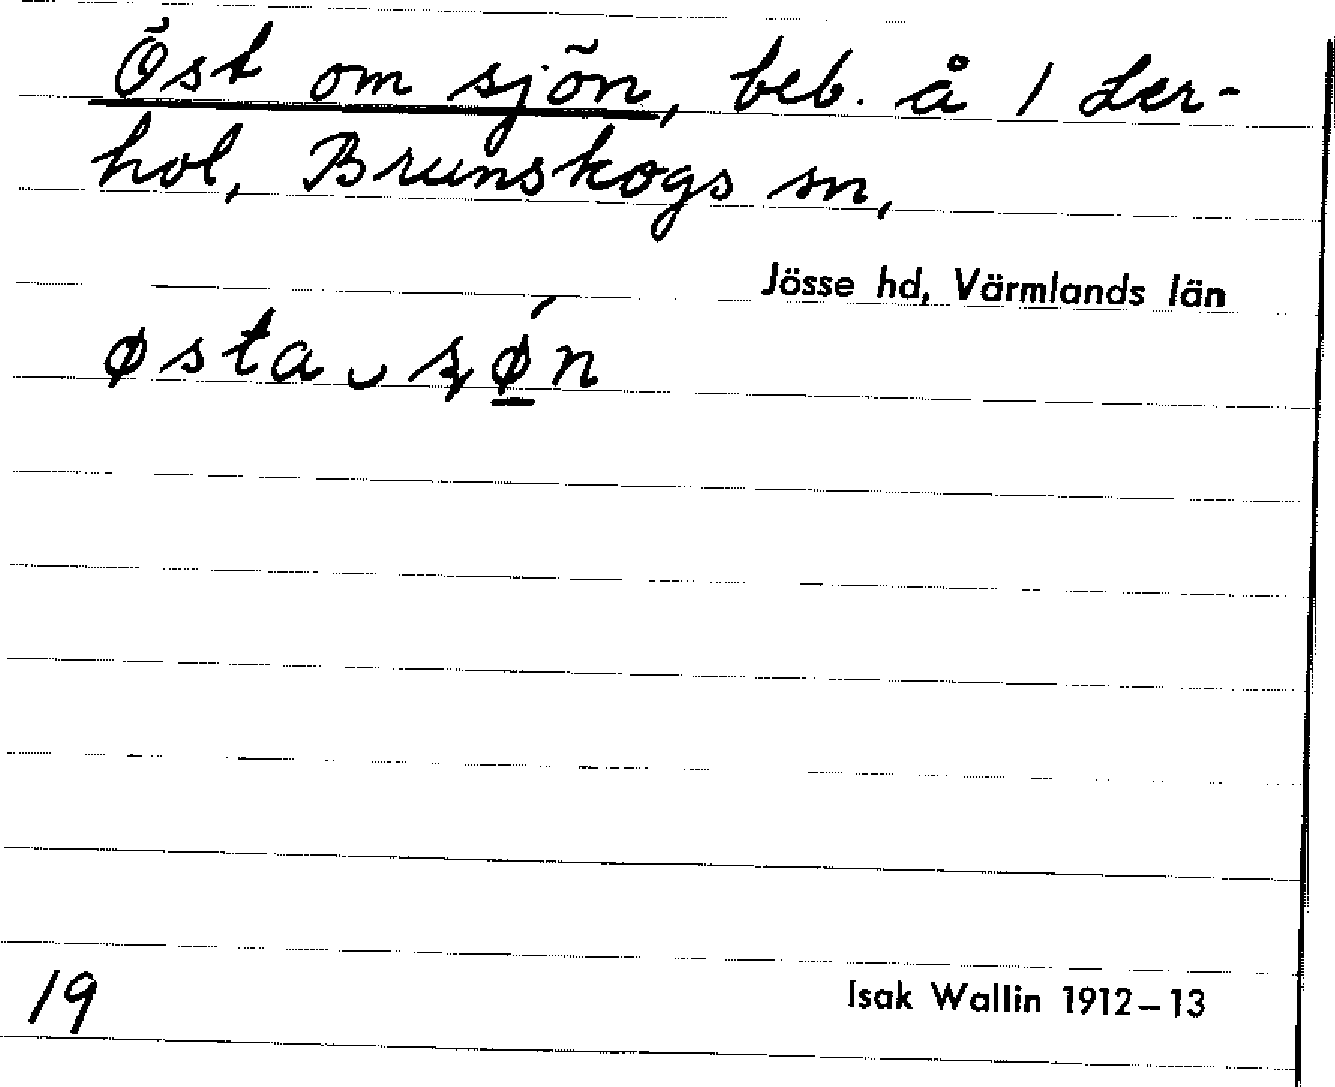 Öst om sjön, beb. å 1 Ler-
hol, Brunskogs sn,
Jösse hd, Värmlands län
østa ‿ sǿ̲n
19
Isak Wallin 1912–13